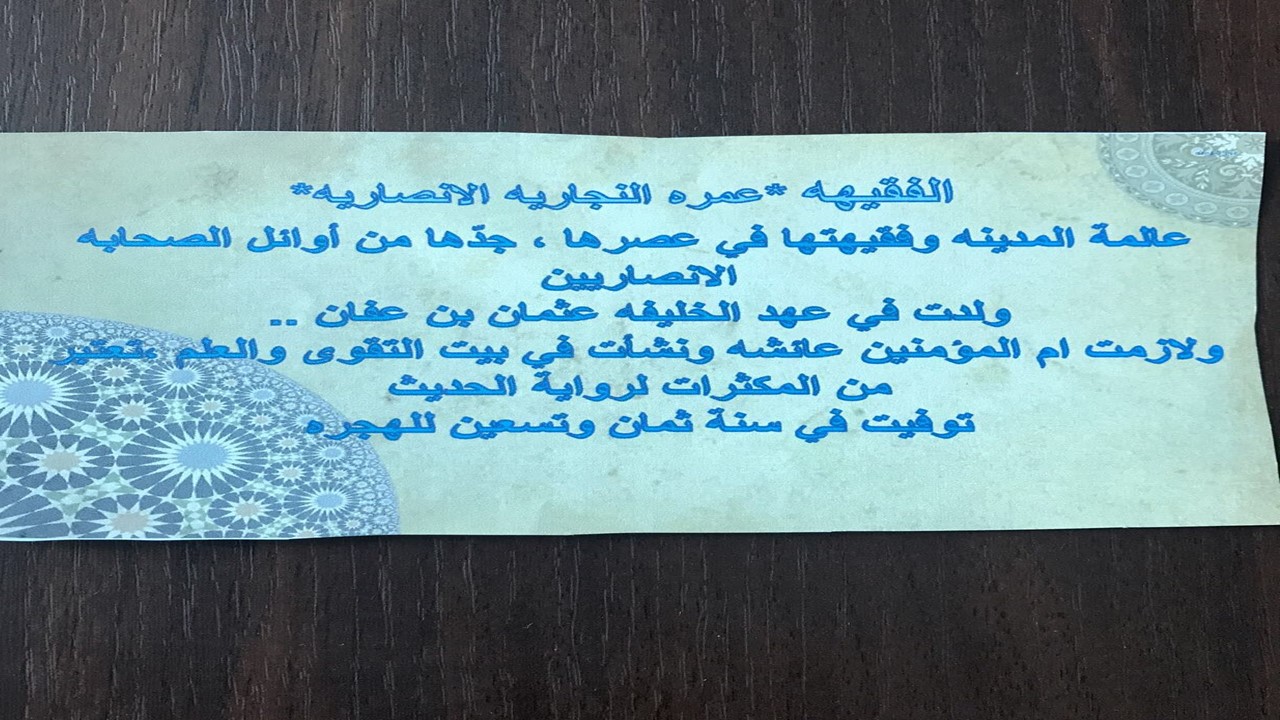 الفقيهه *عمره النجاريه الانصاريه*
عالمة المدينه وفقيهتها في عصرها ، جدّها من أوائل الصحابه
الانصاريين
ولدت في عهد الخليفه عثمان بن عفان ..
ولازمت ام المؤمنين عائشه ونشأت في بيت التقوى والعلم ،تعتبر
من المكثرات لرواية الحديث
توفيت في سنة ثمان وتسعين للهجره